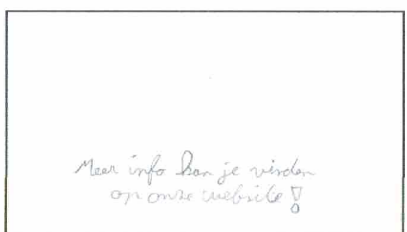 Meer info kan je vinden
op onze website!